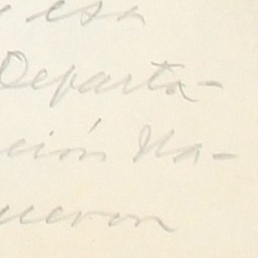 y esa
Departa-
ción Na-
ueron